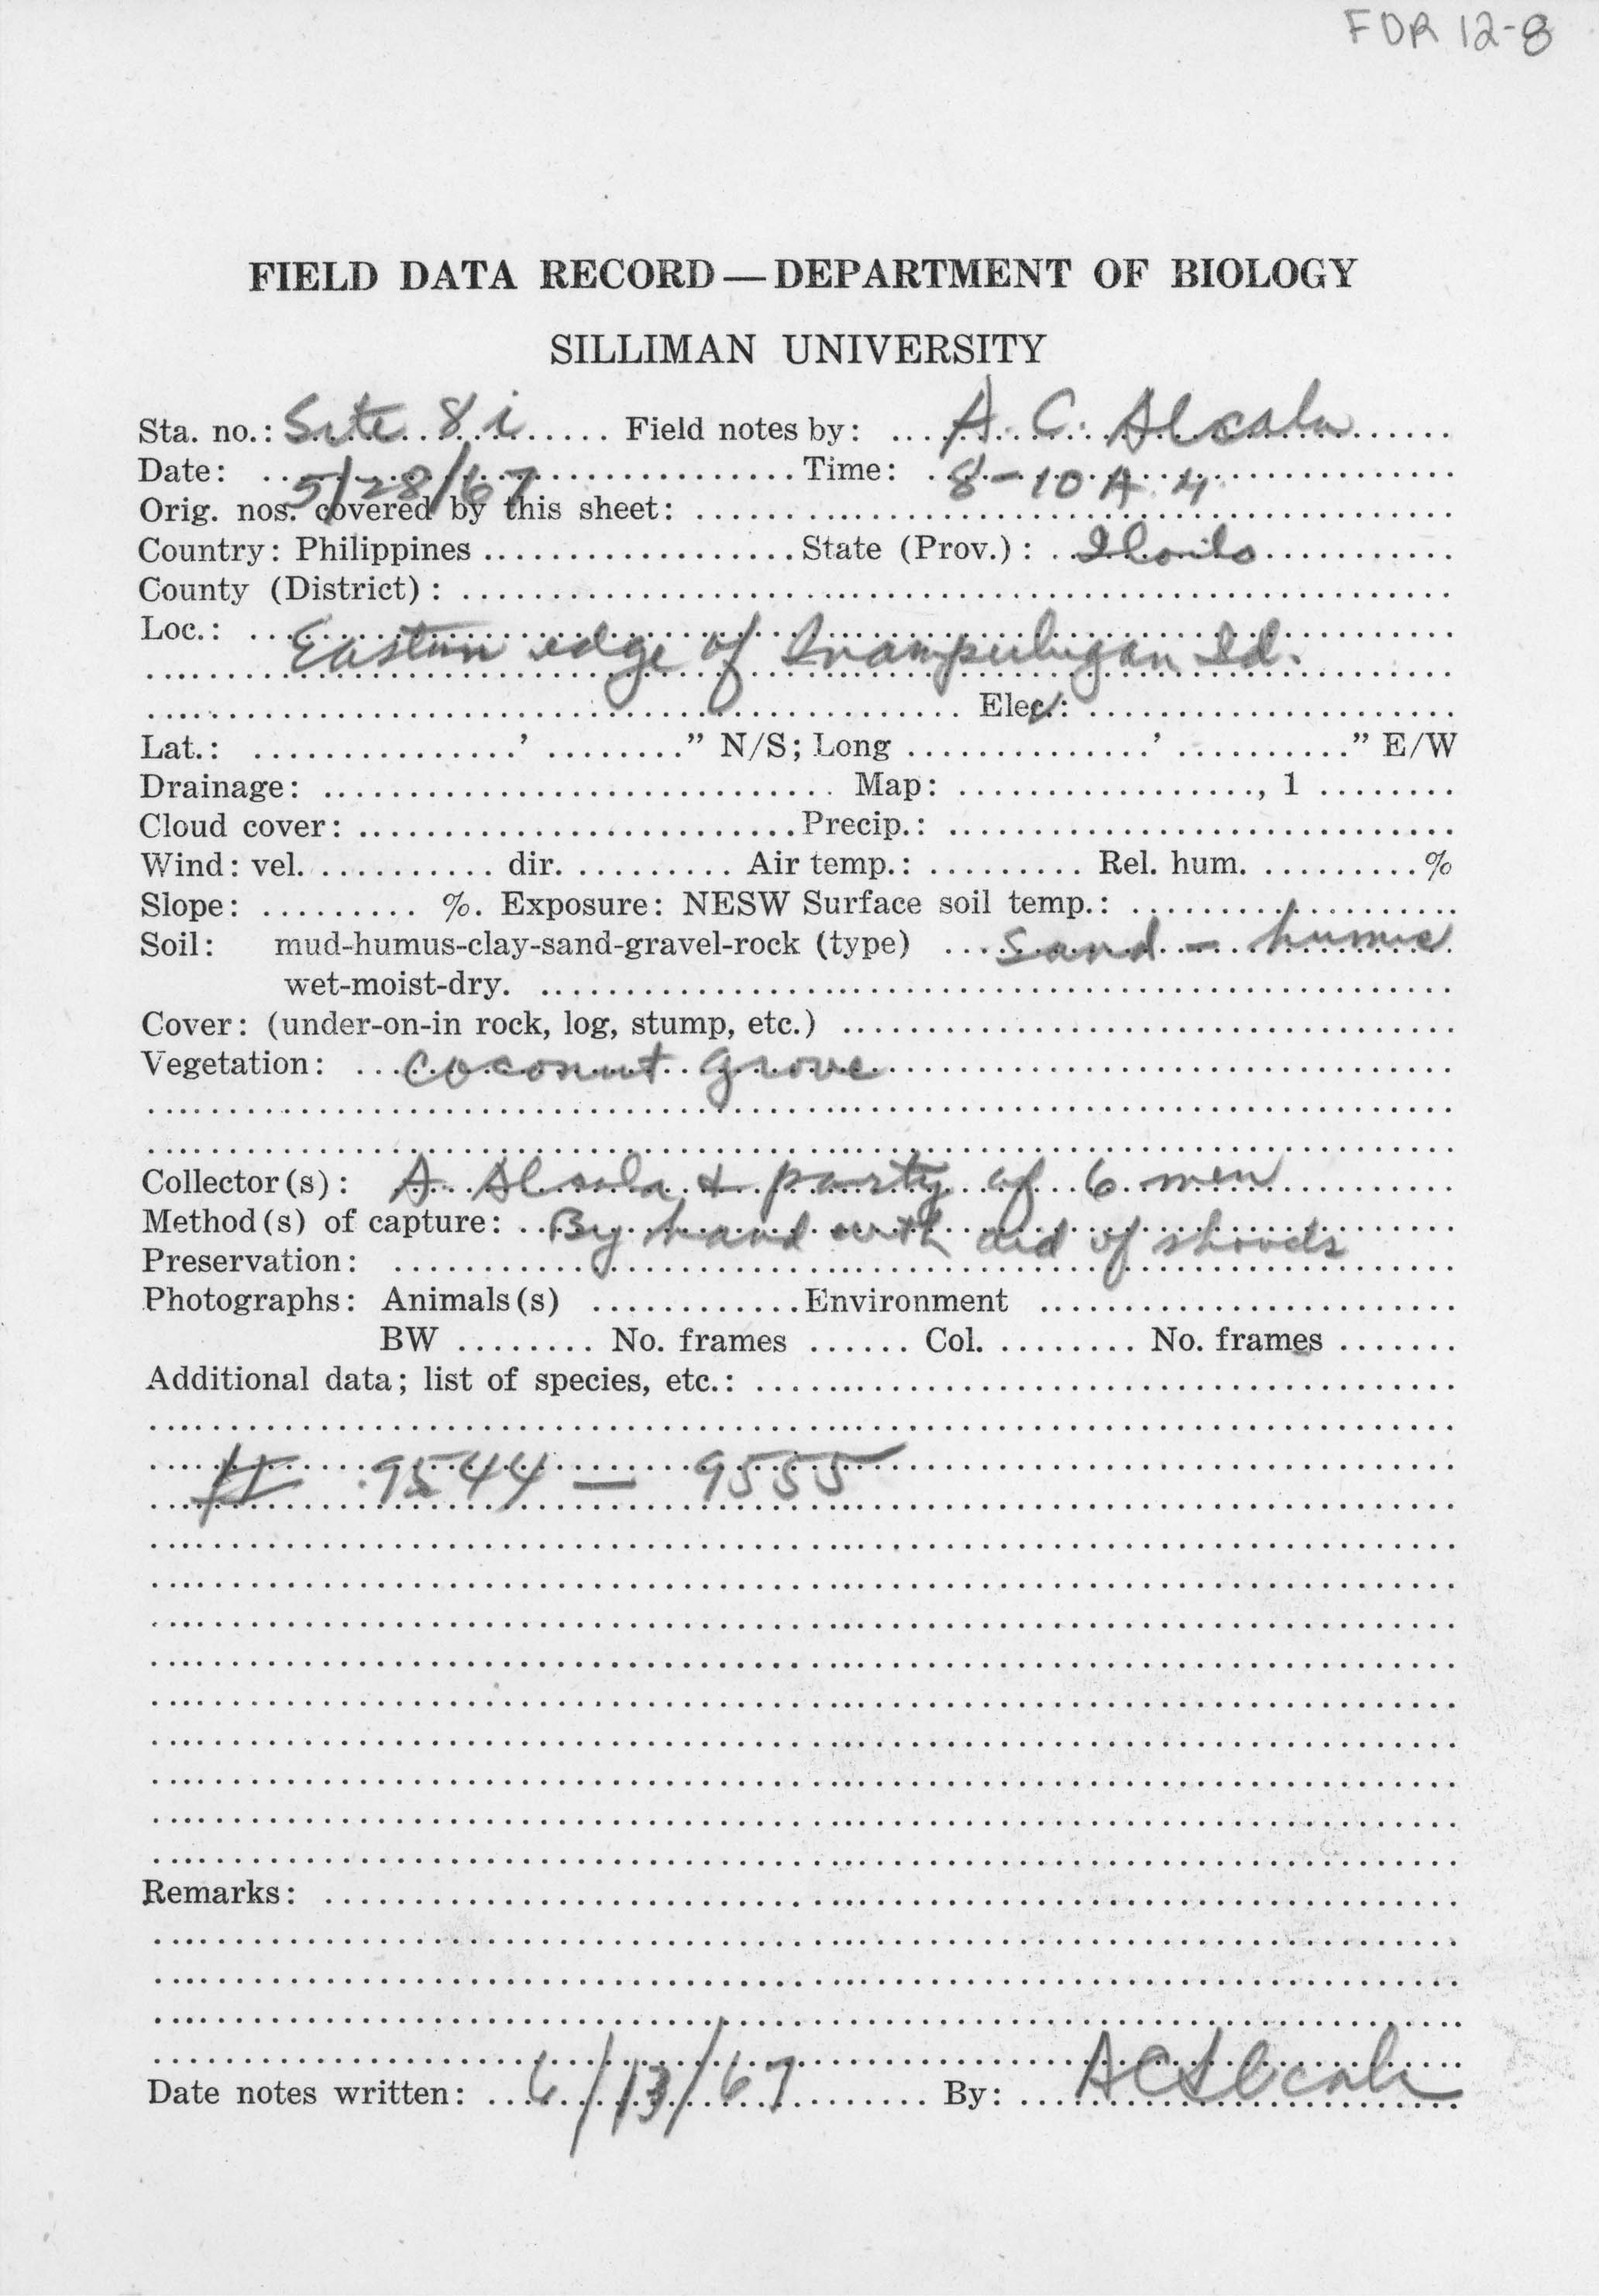 FDR 12-8
FIELD DATA RECORD — DEPARTMENT OF BIOLOGY
SILLIMAN UNIVERSITY
Sta. no.: Site 8 i Field notes by: A. C. Alcala
Date: 5/28/67 Time: 8-10 A.M.
Orig. nos. covered by this sheet:
Country: Philippines State (Prov.): Iloilo
County (District):
Loc.:
Eastern edge of Inampulugan Id.
Elec.:
Lat.: ' " N/S; Long ' " E/W
Drainage: Map: , 1
Cloud cover: Precip.:
Wind: vel. dir. Air temp.: Rel. hum. %
Slope: %. Exposure: NESW Surface soil temp.:
Soil: mud-humus-clay-sand-gravel-rock (type) sand - humic
wet-moist-dry.
Cover: (under-on-in rock, log, stump, etc.)
Vegetation: coconut grove
Collector(s): A. Alcala & party of 6 men
Method(s) of capture: By hand with aid of
Preservation:
Photographs: Animals(s) Environment
BW No. frames Col. No. frames
Additional data; list of species, etc.:
# 9544 — 9555
Remarks:
Date notes written: 6/13/67 By: ACAlcala